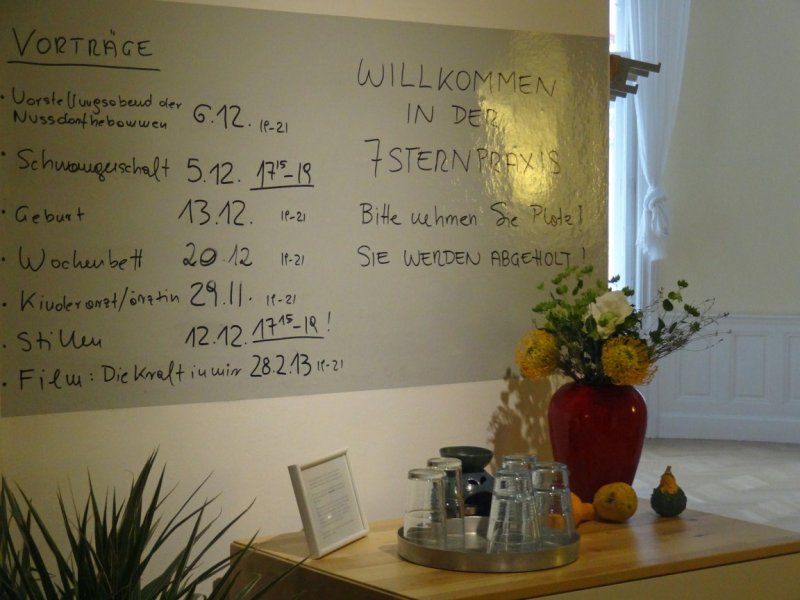 VORTRÄGE
• Vorstellungsabend der
Nussdorfhebammen 6.12. 19-21
• Schwangerschaft 5.12. 17¹⁵-19
• Geburt 13.12. 19-21
• Wochenbett 20.12 19-21
• Kinderarzt/ärztin 29.11. 19-21
• Stillen 12.12. 17¹⁵-19!
• Film: Die Kraft in mir 28.2.13 19-21
WILLKOMMEN
IN DER
7STERNPRAXIS
Bitte nehmen Sie Platz!
SIE WERDEN ABGEHOLT!